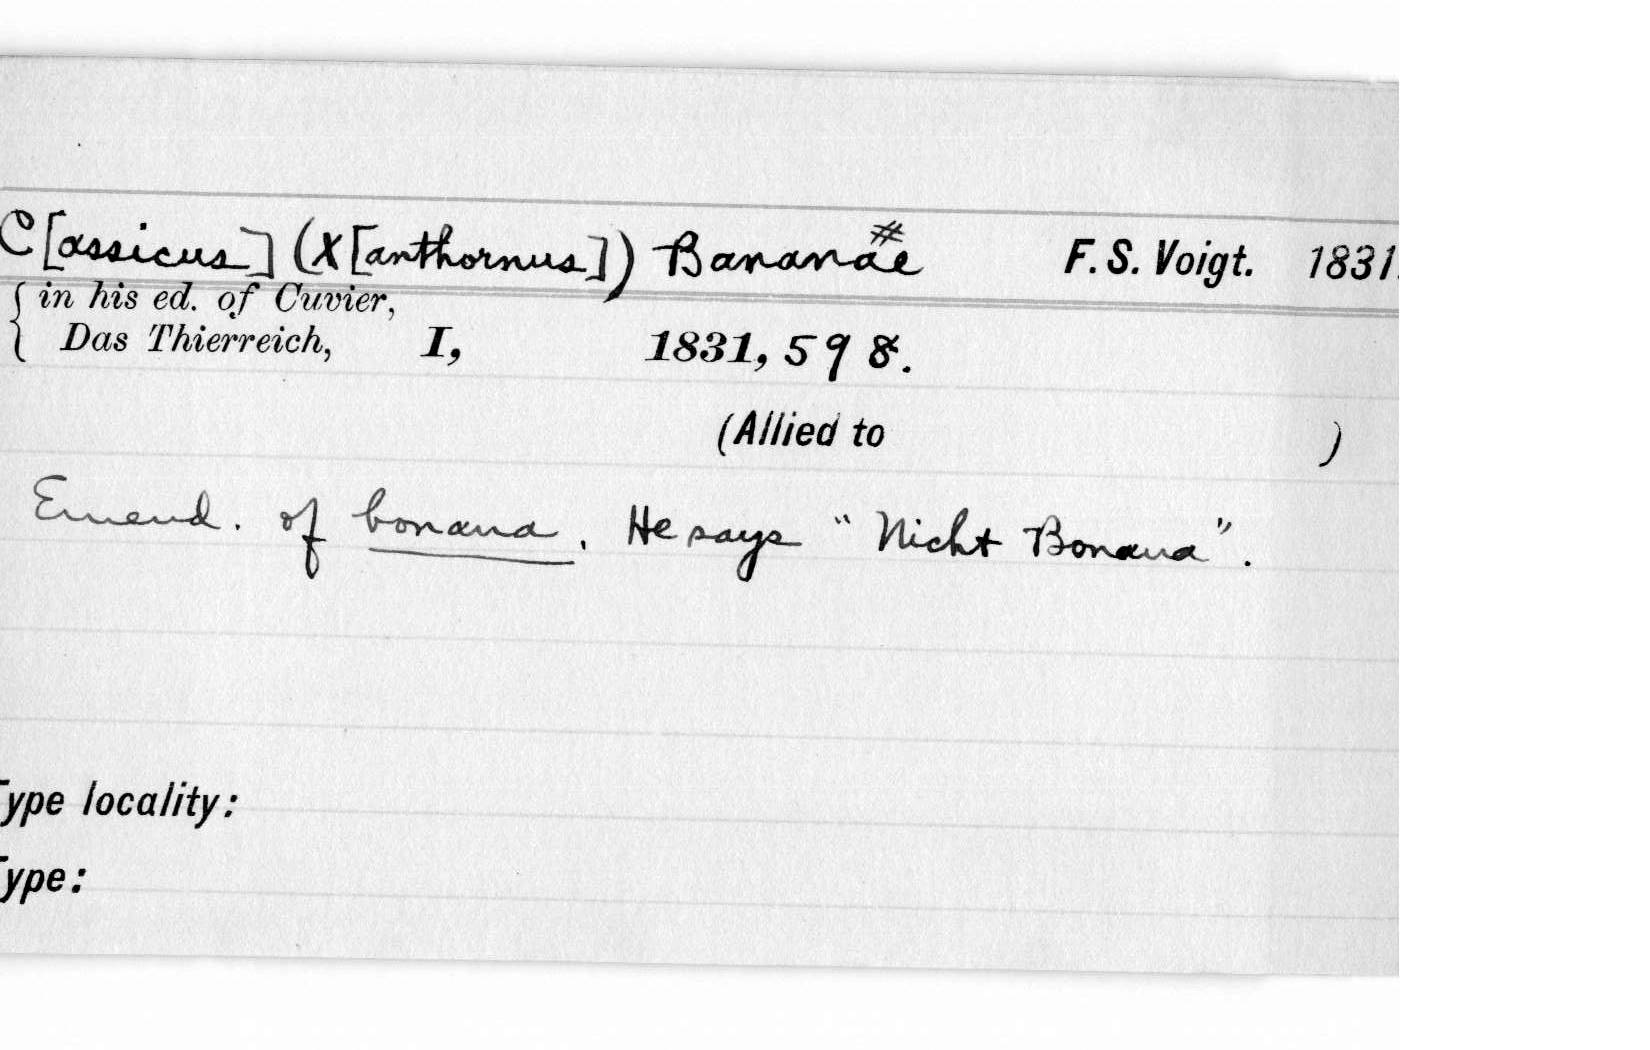 C[assicus] (X[anthornus]) Bananae # F. S. Voigt. 1831.
in his ed. of Cuvier,
Das Thierreich, I, 1831, 598.
(Allied to )
Emend. of bonana. He says "Nicht Bonana".
Type locality:
Type: